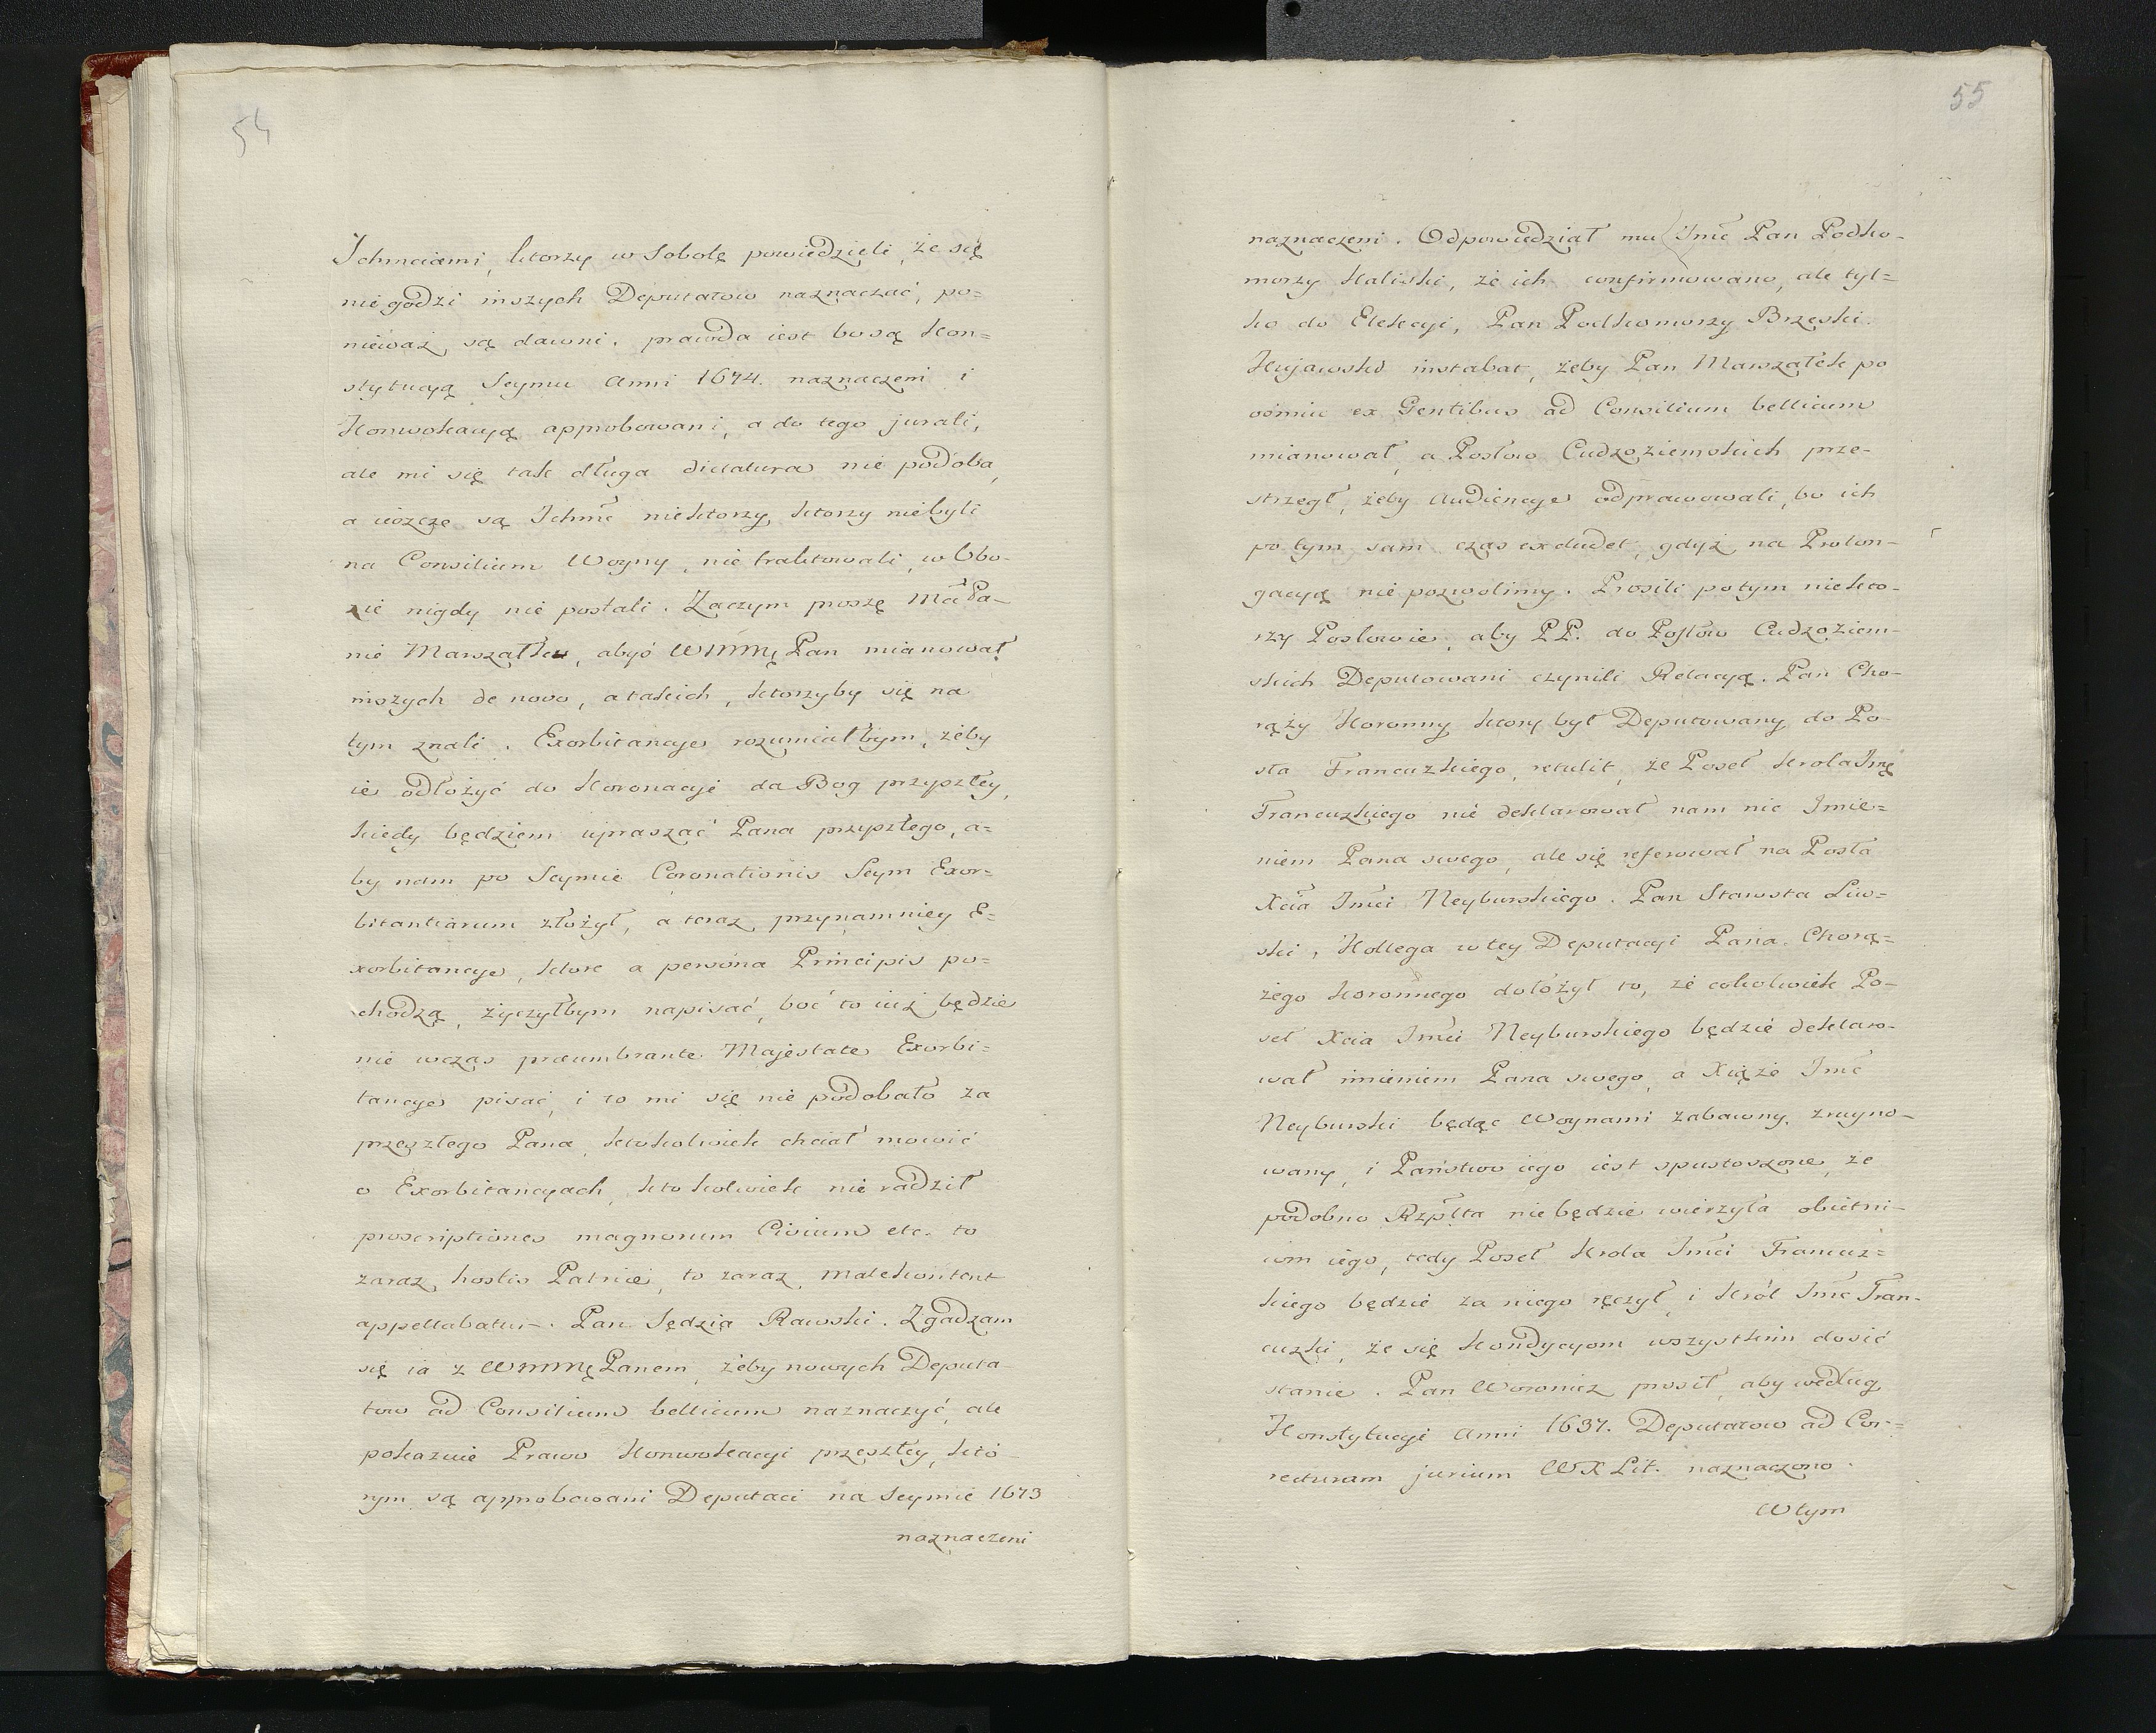 54
Ichmciami, ktorzy w Sobotę powiedzieli, że się
nie godzi inszych Deputatow naznaczać, po=
nieważ są dawni. prawda iest bo są Kon=
stytucyą Seymu Anni 1674. naznaczeni i
Konwokacyą approbowani, a do tego jurati,
ale mi się tak długa dictatura nie podoba,
a ieszcze są Ichmć niektorzy, ktorzy niebyli
na Consilium Woyny, nie traktowali, w Obo-
zie nigdy nie postali. Zaczym proszę Mći Pa-
nie Marszałku, abyś WMMę Pan mianował
inszych de novo, a takich, ktorzyby się na
tym znali. Exorbitancye rozumiałbym, żeby
ie odłożyć do Koronacyi da Bog przyszłey,
kiedy będziem upraszać Pana przyszłego, a=
by nam po Seymie Coronationis Seym Exor-
bitantiarum złożył, a teraz przynamniey E=
xorbitancye, ktore a persona Principis po=
chodzą, życzyłbym napisać, boć to iuż będzie
nie wczas præumbrante Majestate Exorbi=
tancye pisać, i to mi się nie podobało za
przeszłego Pana, ktokolwiek chciał mowić
o Exorbitancyach, ktokolwiek nie radził
proscriptiones magnorum Civium etc. to
zaraz hostis Patriæ, to zaraz malekontent
appellabatur. Pan Sędzia Rawski. Zgadzam
się ia z WMMę Panem, żeby nowych Deputa-
tow ad Consilium bellicum naznaczyć, ale
pokazuie Prawo Konwokacyi przeszłey, któ-
rym są approbowani Deputaci na Seymie 1673
naznaczeni
55
naznaczeni. Odpowiedział mu Jmć Pan Podko-
morzy Kaliski, że ich confirmowano, ale tyl=
ko do Elekcyi, Pan Podkomorzy Brzeski
Kujawski instabat, żeby Pan Marszałek po
osmiu ex Gentibus ad Consilium bellicum
mianował, a Posłow Cudzoziemskich prze-
strzegł, żeby Audiencye odprawowali, bo ich
potym sam czas excludet, gdyż na Prolon-
gacyą nie pozwolimy. Prosili potym niekto-
rzy Posłowie, aby P.P. do Posłow Cudzoziem-
skich Deputowani czynili Relacyą. Pan Cho-
rąży Koronny ktory był Deputowany do Po-
sła Francuzkiego, retulit, że Poseł Krola Jmę
Francuzkiego nie deklarował nam nic Imie=
niem Pana swego, ale się referował na Posła
Xcia Jmći Neyburskiego. Pan Starosta Liw=
ski, Kollega w tey Deputacyi Pana Chorą=
żego Koronnego dołożył to, że cokolwiek Po-
seł Xcia Jmći Neyburskiego będzie deklaro-
wał imieniem Pana swego, a Xiąże Jmć
Neyburski będąc Woynami zabawny, zruyno-
wany, i Państwo iego iest spustoszone, że
podobno Rzplta nie będzie wierzyła obietni-
com iego, tedy Poseł Krola Jmći Francuz=
kiego będzie za niego ręczył, i Król Jmć Fran-
cuzki, że się Kondycyom wszystkim dosić
stanie. Pan Woronicz prosił, aby według
Konstytucyi Anni 1637. Deputatow ad Cor=
recturam jurium WXLit. naznaczono.
W tym